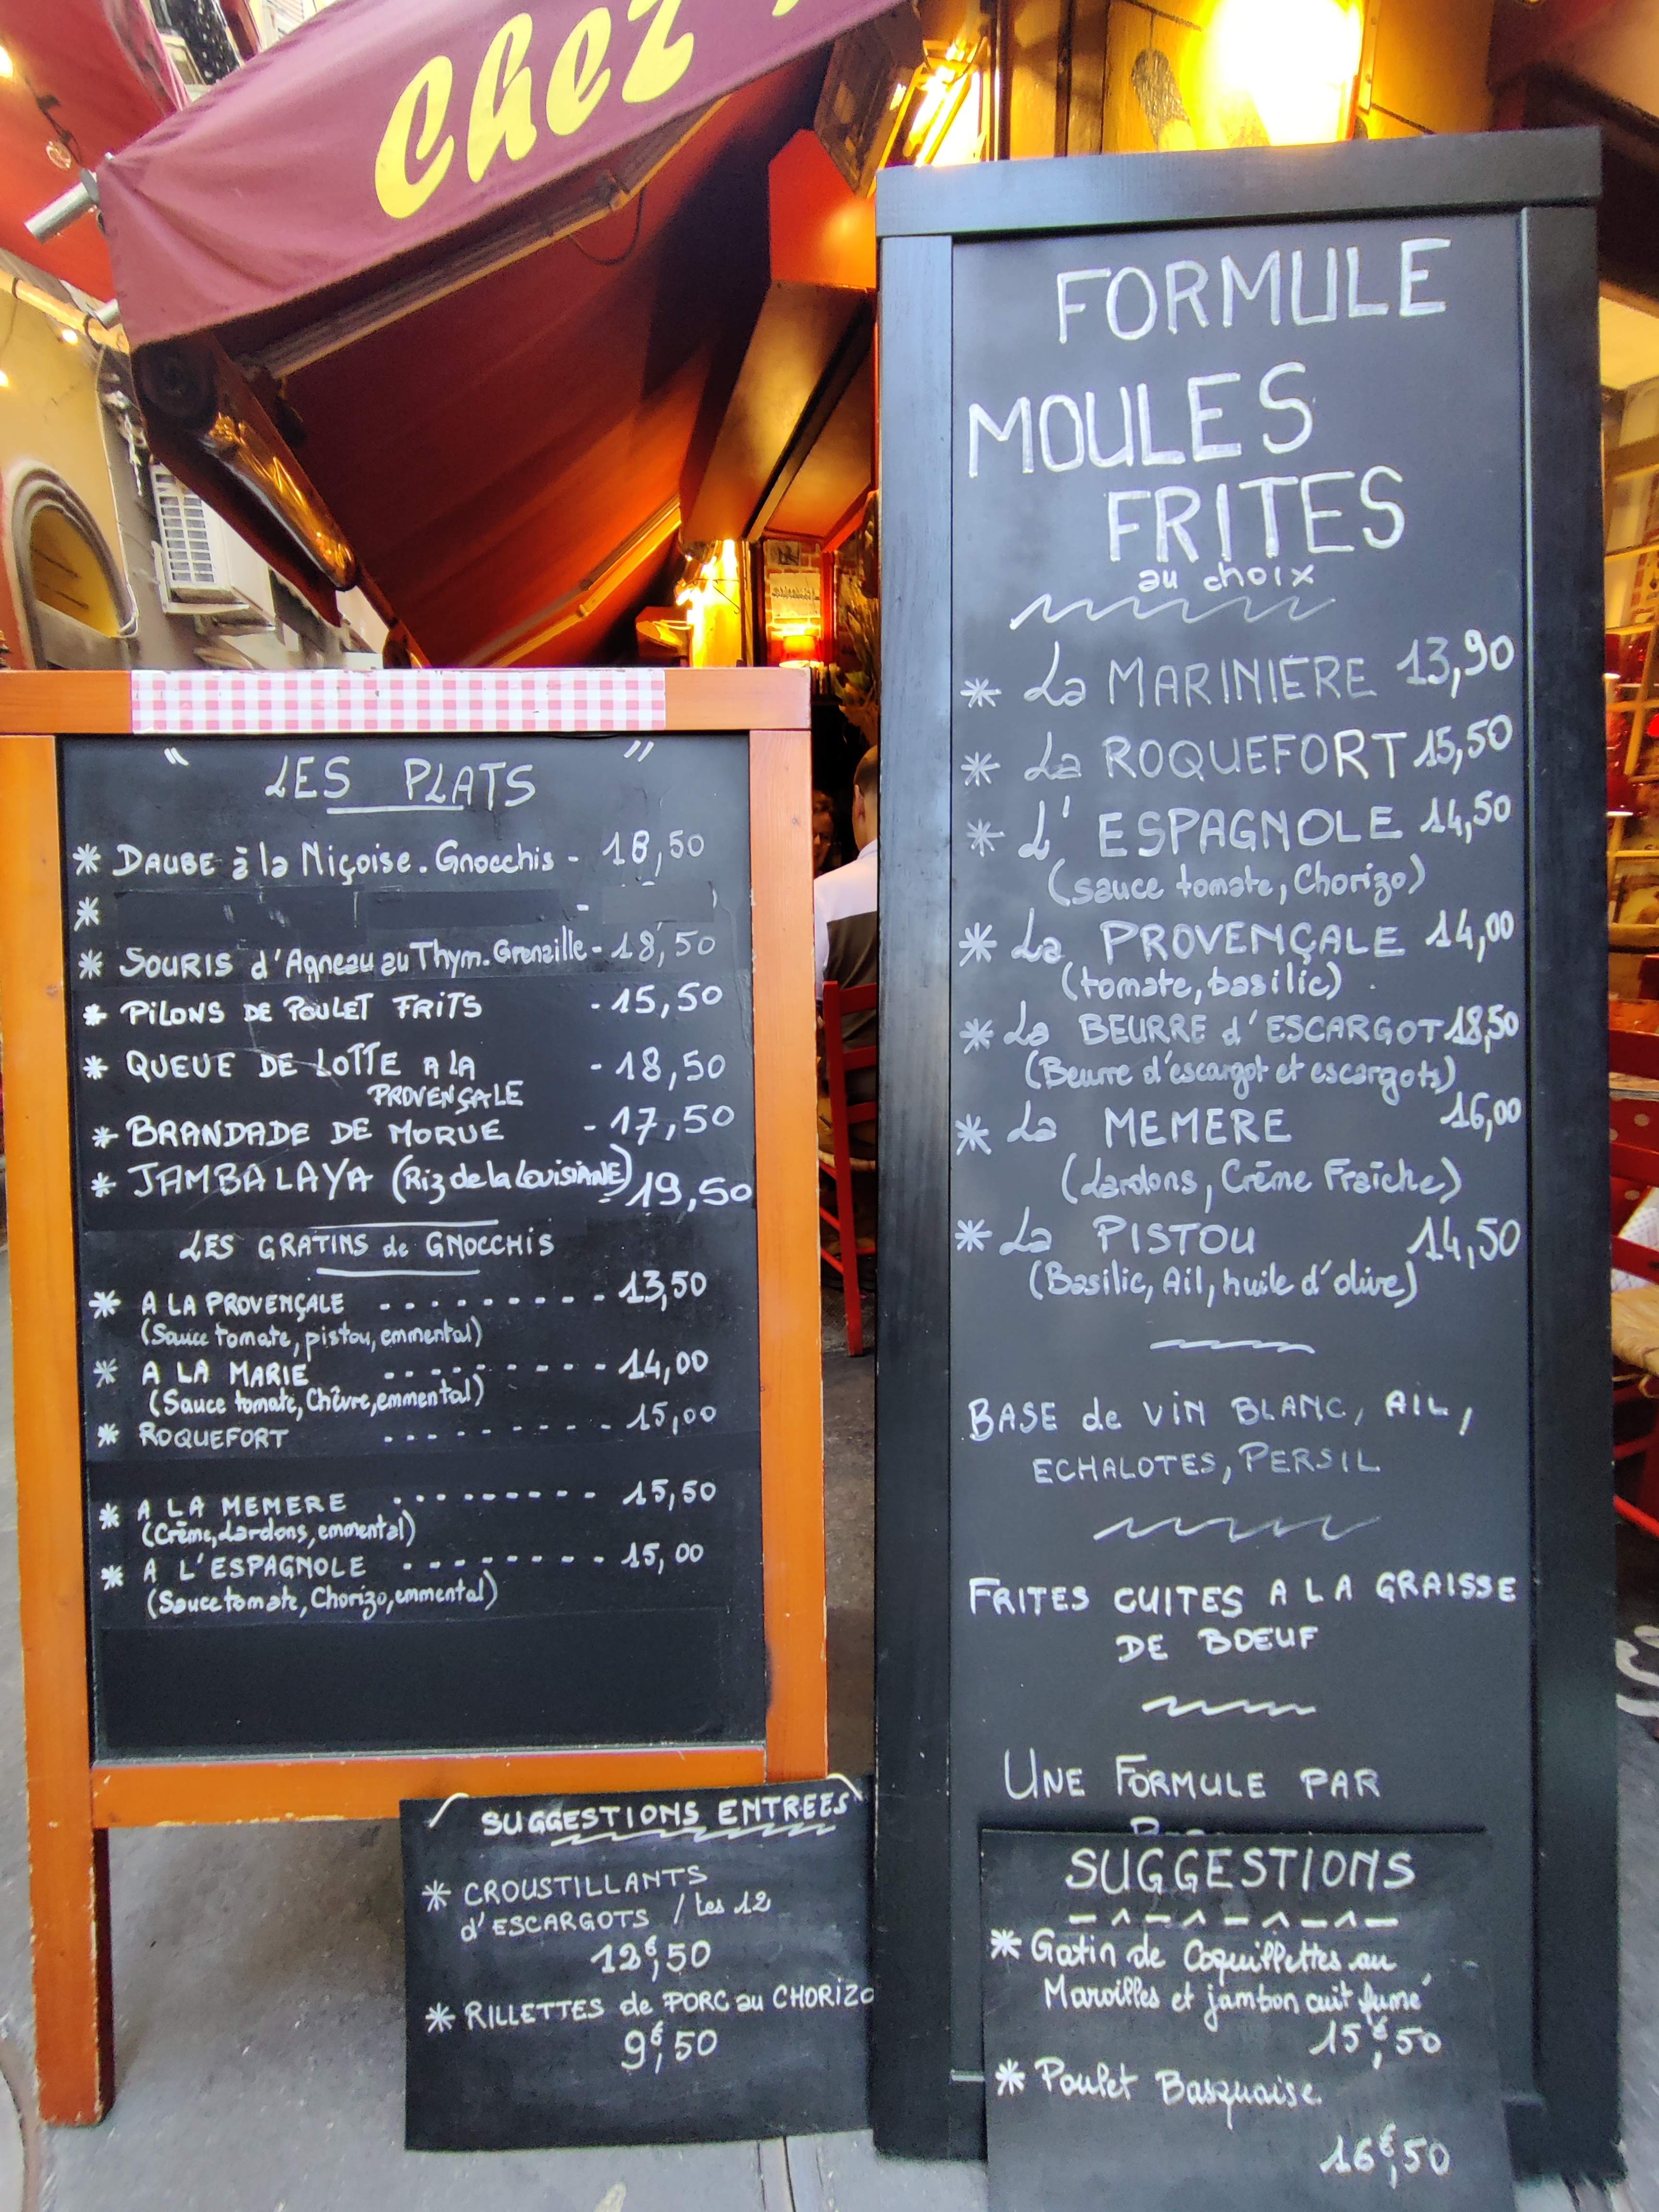 Chez
" LES PLATS "
* DAUBE à la Niçoise. Gnocchis - 18,50
*
* SOURIS d'Agneau au Thym. Grenaille - 18,50
* PILONS DE POULET FRITS - 15,50
* QUEUE DE LOTTE A LA - 18,50
PROVENÇALE
* BRANDADE DE MORUE - 17,50
* JAMBALAYA (Riz de la LOUISIANE) 19,50
LES GRATINS de GNOCCHIS
* A LA PROVENÇALE - - - - - - - - - 13,50
(Sauce tomate, pistou, emmental)
* A LA MARIE - - - - - - - - - 14,00
(Sauce tomate, Chèvre, emmental)
* ROQUEFORT - - - - - - - - - 15,00
* A LA MEMERE - - - - - - - - - 15,50
(Crème, Lardons, emmental)
* A L'ESPAGNOLE - - - - - - - - 15,00
(Sauce tomate, Chorizo, emmental)
SUGGESTIONS ENTREES
* CROUSTILLANTS
d'ESCARGOTS / Les 12
12€,50
* RILLETTES de PORC au CHORIZO
9€,50
FORMULE
MOULES
FRITES
au choix
* La MARINIERE 13,90
* La ROQUEFORT 15,50
* L'ESPAGNOLE 14,50
(sauce tomate, Chorizo)
* La PROVENÇALE 14,00
(tomate, basilic)
* La BEURRE d'ESCARGOT 18,50
(Beurre d'escargot et escargots)
* La MEMERE 16,00
(Lardons, Crème Fraîche)
* La PISTOU 14,50
(Basilic, Ail, huile d'olive)
BASE de VIN BLANC, AIL,
ECHALOTES, PERSIL
FRITES CUITES A LA GRAISSE
DE BOEUF
UNE FORMULE PAR
SUGGESTIONS
* Gratin de Coquillettes au
Maroilles et jambon cuit fumé
15€,50
* Poulet Basquaise
16€,50